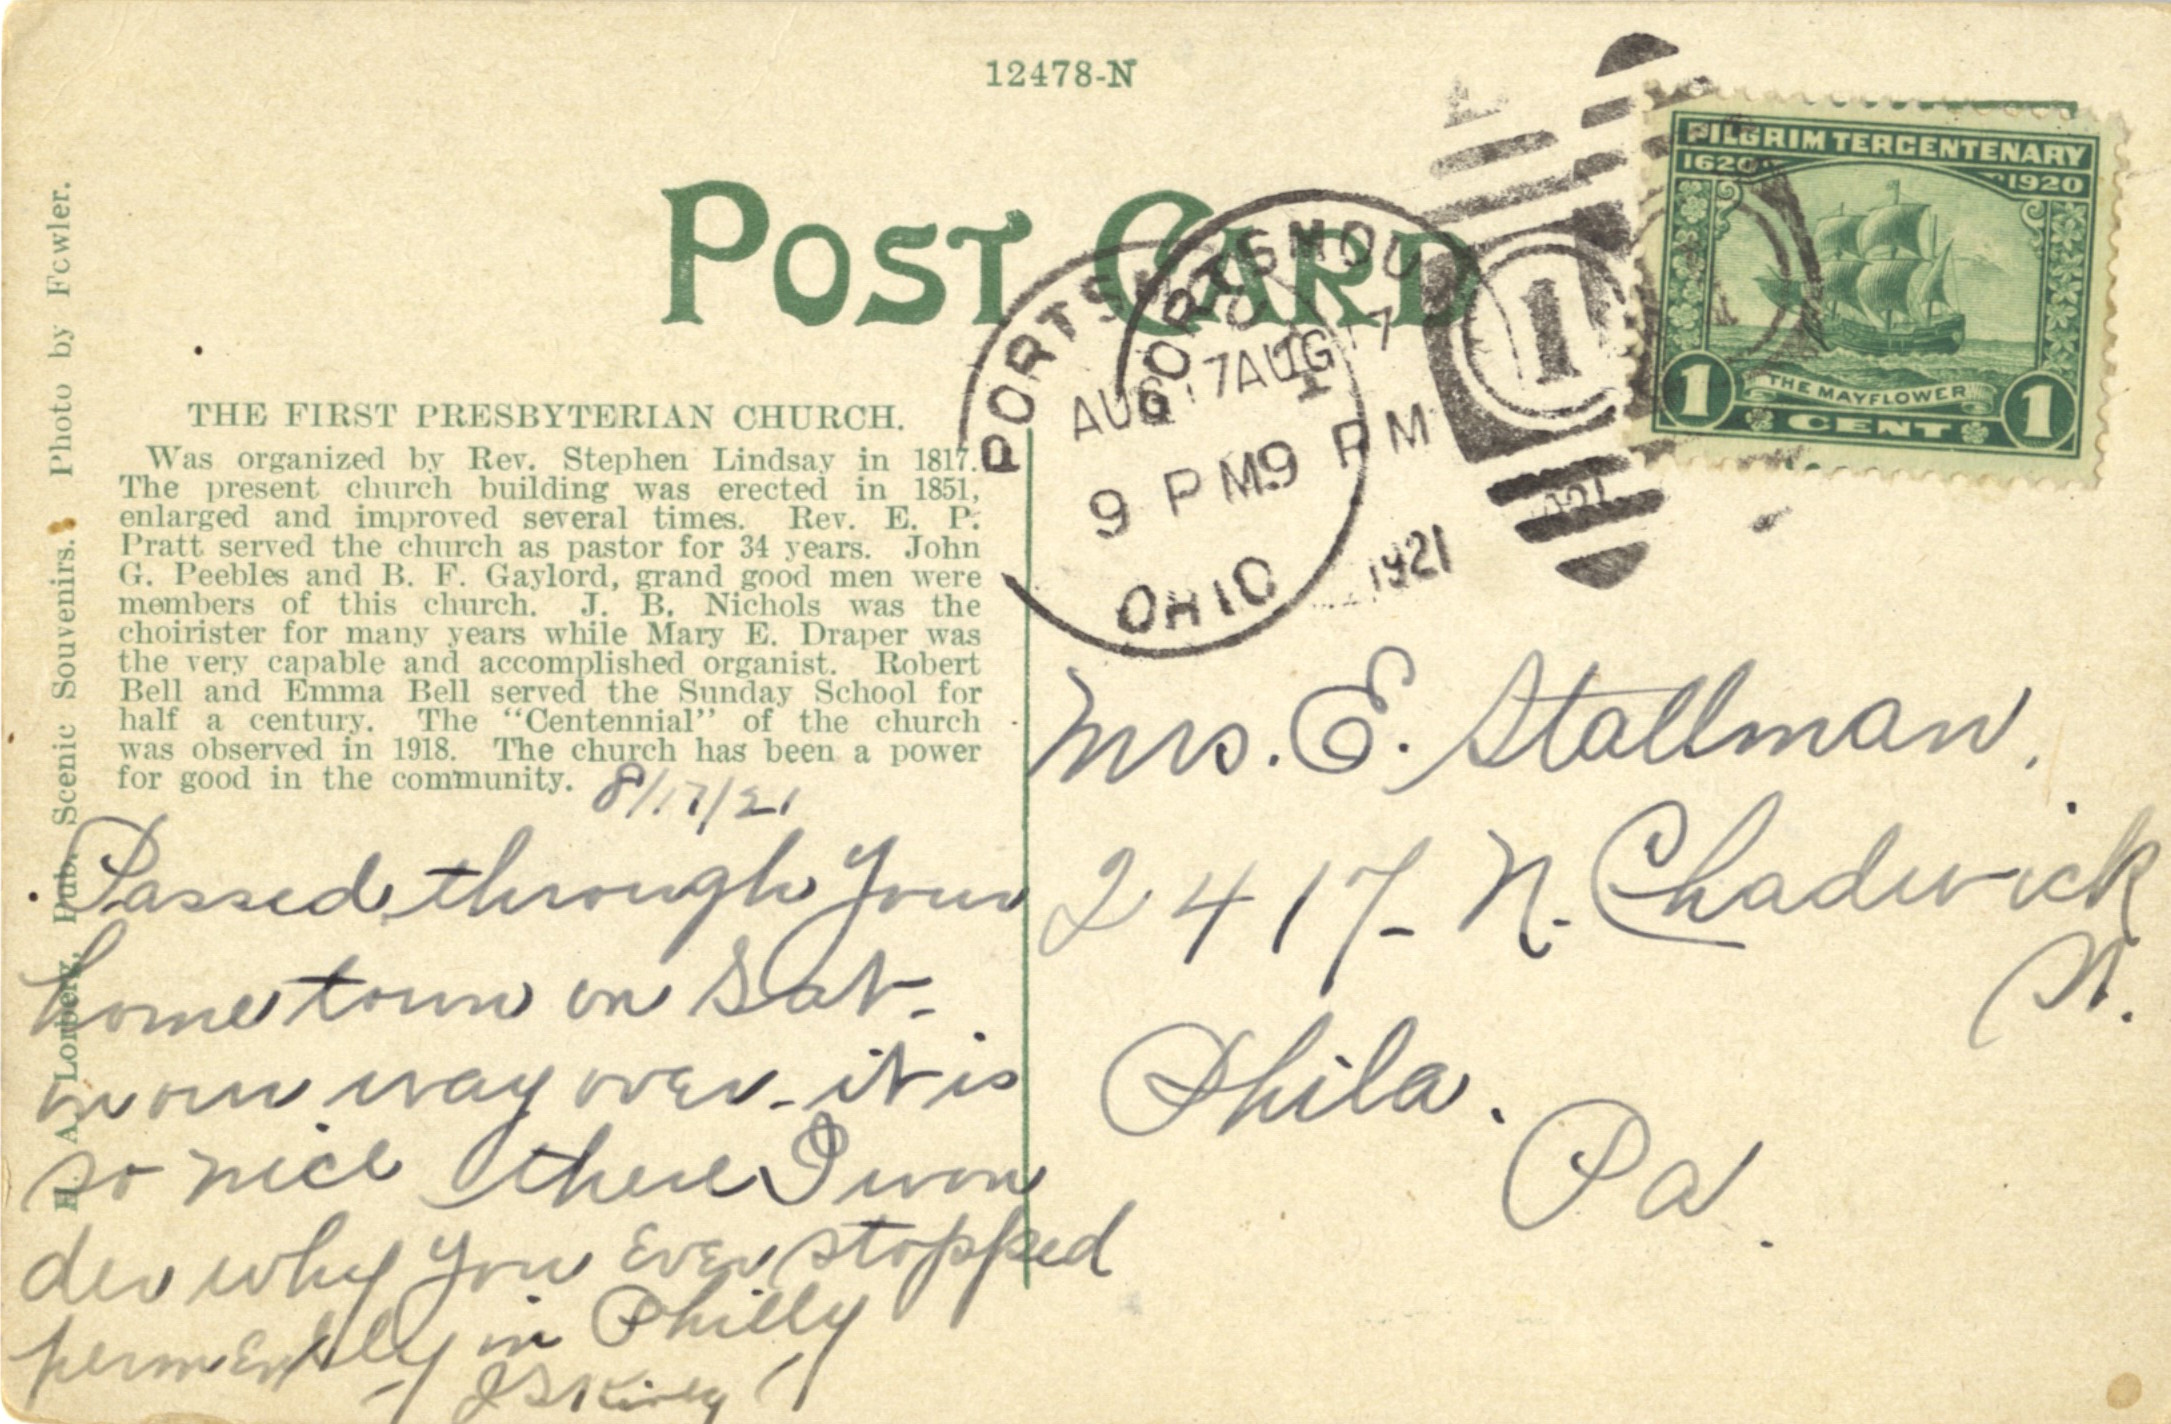 12478-N
POST CARD
PORTSMOU
PORTS
AUG 17 AUG 17
9 PM 9 PM
1921
OHIO
1
PILGRIM TERCENTENARY
1620 1920
THE MAYFLOWER
1 CENT 1
H. A. Lorberg, Pub. Scenic Souvenirs. Photo by Fowler.
THE FIRST PRESBYTERIAN CHURCH.
Was organized by Rev. Stephen Lindsay in 1817.
The present church building was erected in 1851,
enlarged and improved several times. Rev. E. P.
Pratt served the church as pastor for 34 years. John
G. Peebles and B. F. Gaylord, grand good men were
members of this church. J. B. Nichols was the
choirister for many years while Mary E. Draper was
the very capable and accomplished organist. Robert
Bell and Emma Bell served the Sunday School for
half a century. The "Centennial" of the church
was observed in 1918. The church has been a power
for good in the community.
8/17/21
Passed through your
home town on Sat.
on our way over - it is
so nice there I won
der why you ever stopped
permently in Philly
Mrs. E. Stallman.
2417 - N. Chadwick
St.
Phila.
Pa.